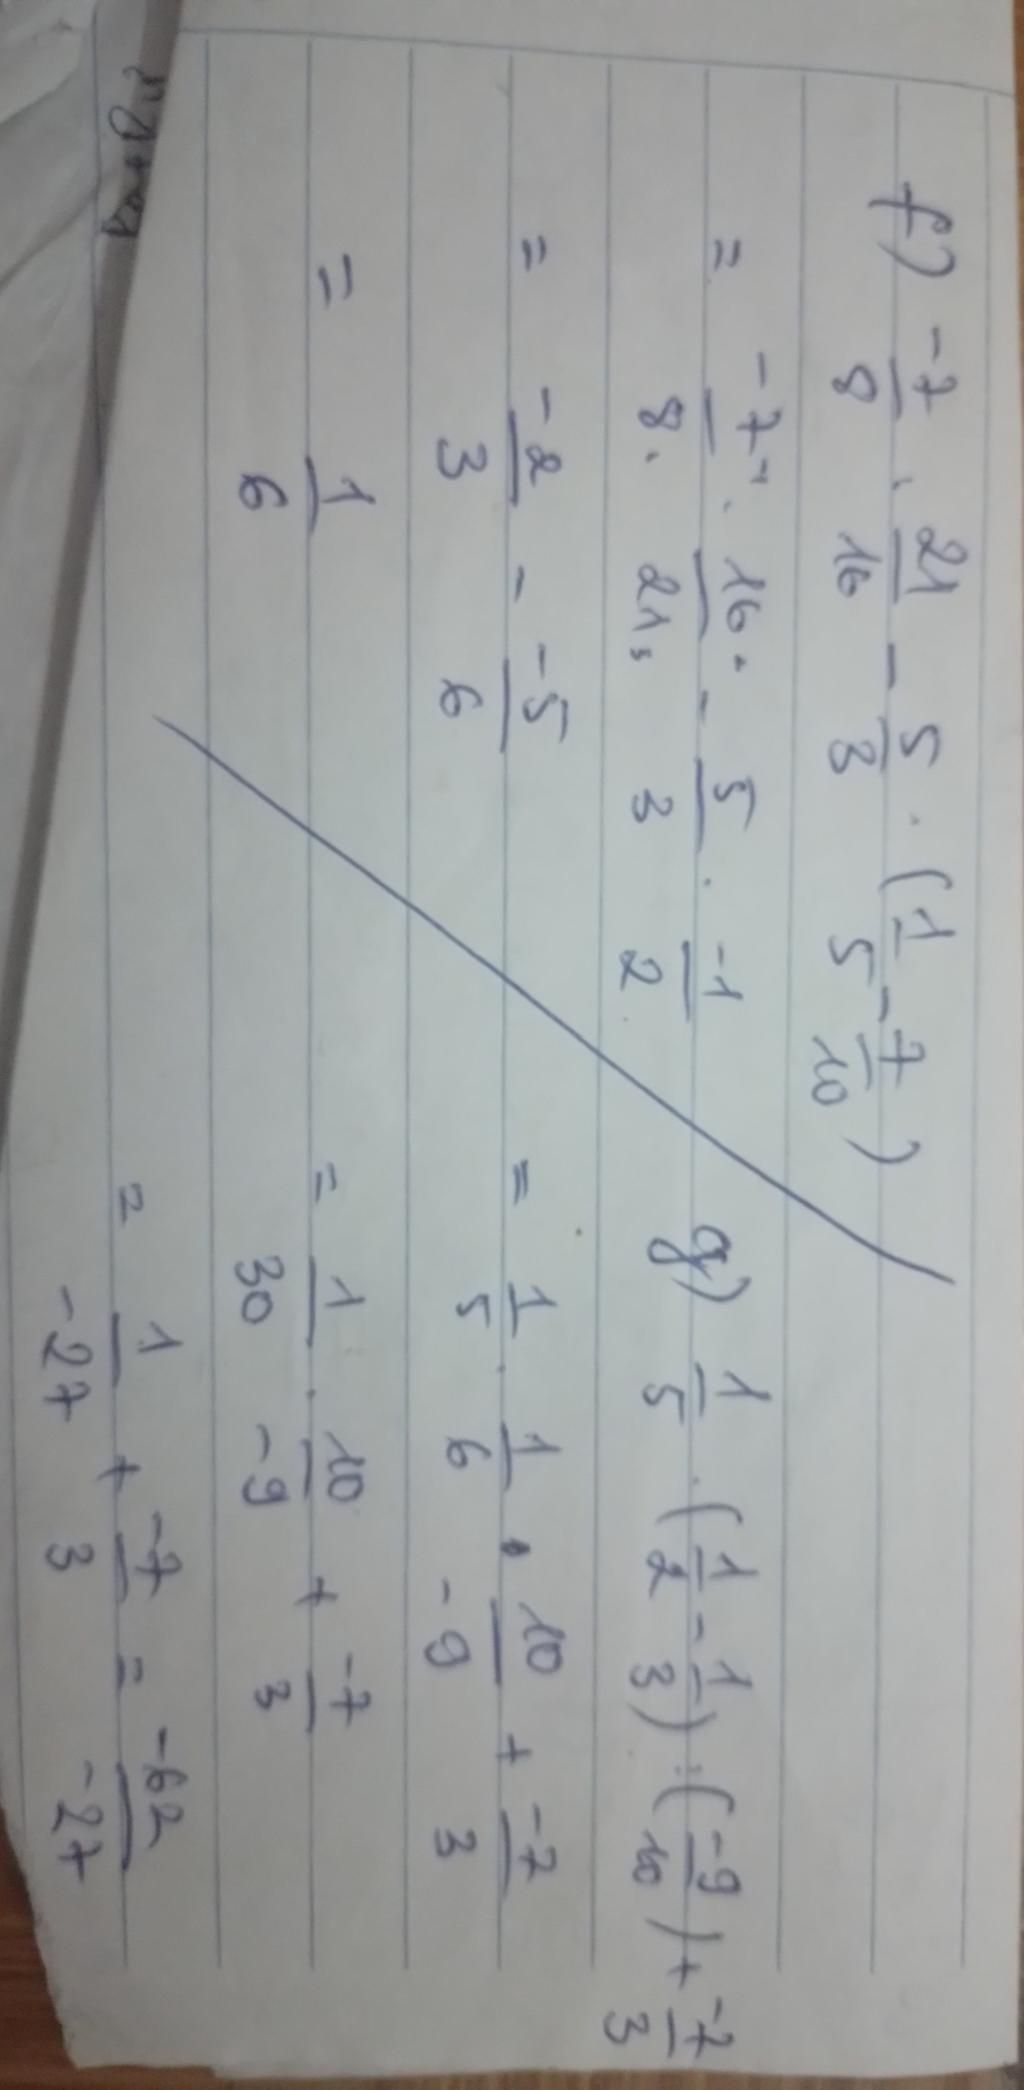 f) -7/8 . 21/16 - 5/3 . (1/5 - 7/10)
= -7/8 . 16/21 - 5/3 . -1/2
= -2/3 - -5/6
= 1/6
g) 1/5 . (1/2 - 1/3) : (-9/10) + -7/3
= 1/5 . 1/6 . 10/-9 + -7/3
= 1/30 . 10/-9 + -7/3
= 1/-27 + -7/3 = -62/-27